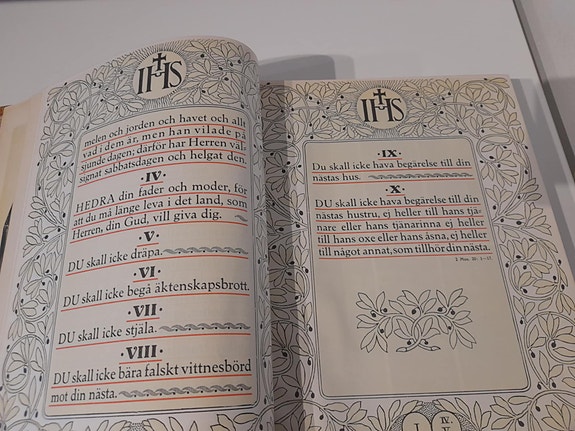 IHS
melen och jorden och havet och allt
vad i dem är, men han vilade på
sjunde dagen; därför har Herren väl-
signat sabbatsdagen och helgat den.
·IV·
HEDRA din fader och moder, för
att du må länge leva i det land, som
Herren, din Gud, vill giva dig.
·V·
DU skall icke dräpa.
·VI·
DU skall icke begå äktenskapsbrott.
·VII·
DU skall icke stjäla.
·VIII·
DU skall icke bära falskt vittnesbörd
mot din nästa.
IHS
·IX·
Du skall icke hava begärelse till din
nästas hus.
·X·
DU skall icke hava begärelse till din
nästas hustru, ej heller till hans tjä-
nare eller hans tjänarinna ej heller
till hans oxe eller hans åsna, ej heller
till något annat, som tillhör din nästa.
2 Mos. 20: 1-17.
I
IV
V